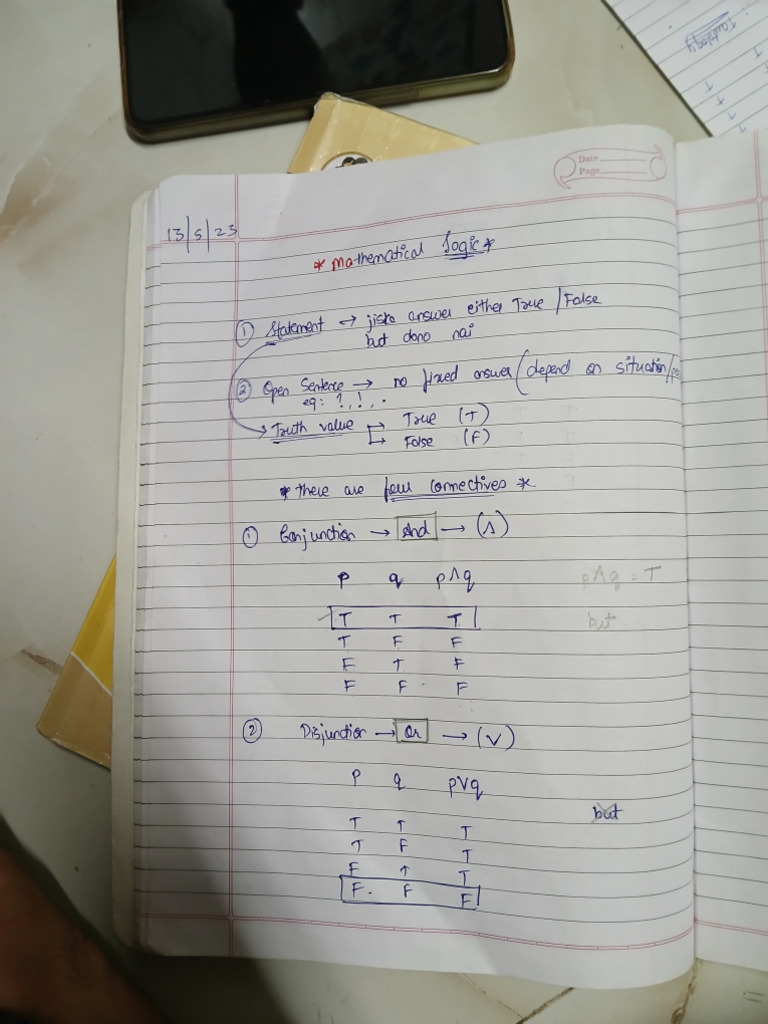 Tautology
T
T
T
T
Date
Page
13/5/23
* Mathematical Logic *
① Statement → jisko answer either True / False
but dono nai
② Open Sentence → no fixed answer (depend on situation/
eg: ?, !, .
→ Truth value → True (T)
→ False (F)
* There are few connectives *
① Conjunction → And → (∧)
p q p∧q
p∧q = T
T T T
but
T F F
F T F
F F F
② Disjunction → Or → (∨)
p q p∨q
but
T T T
T F T
F T T
F F F